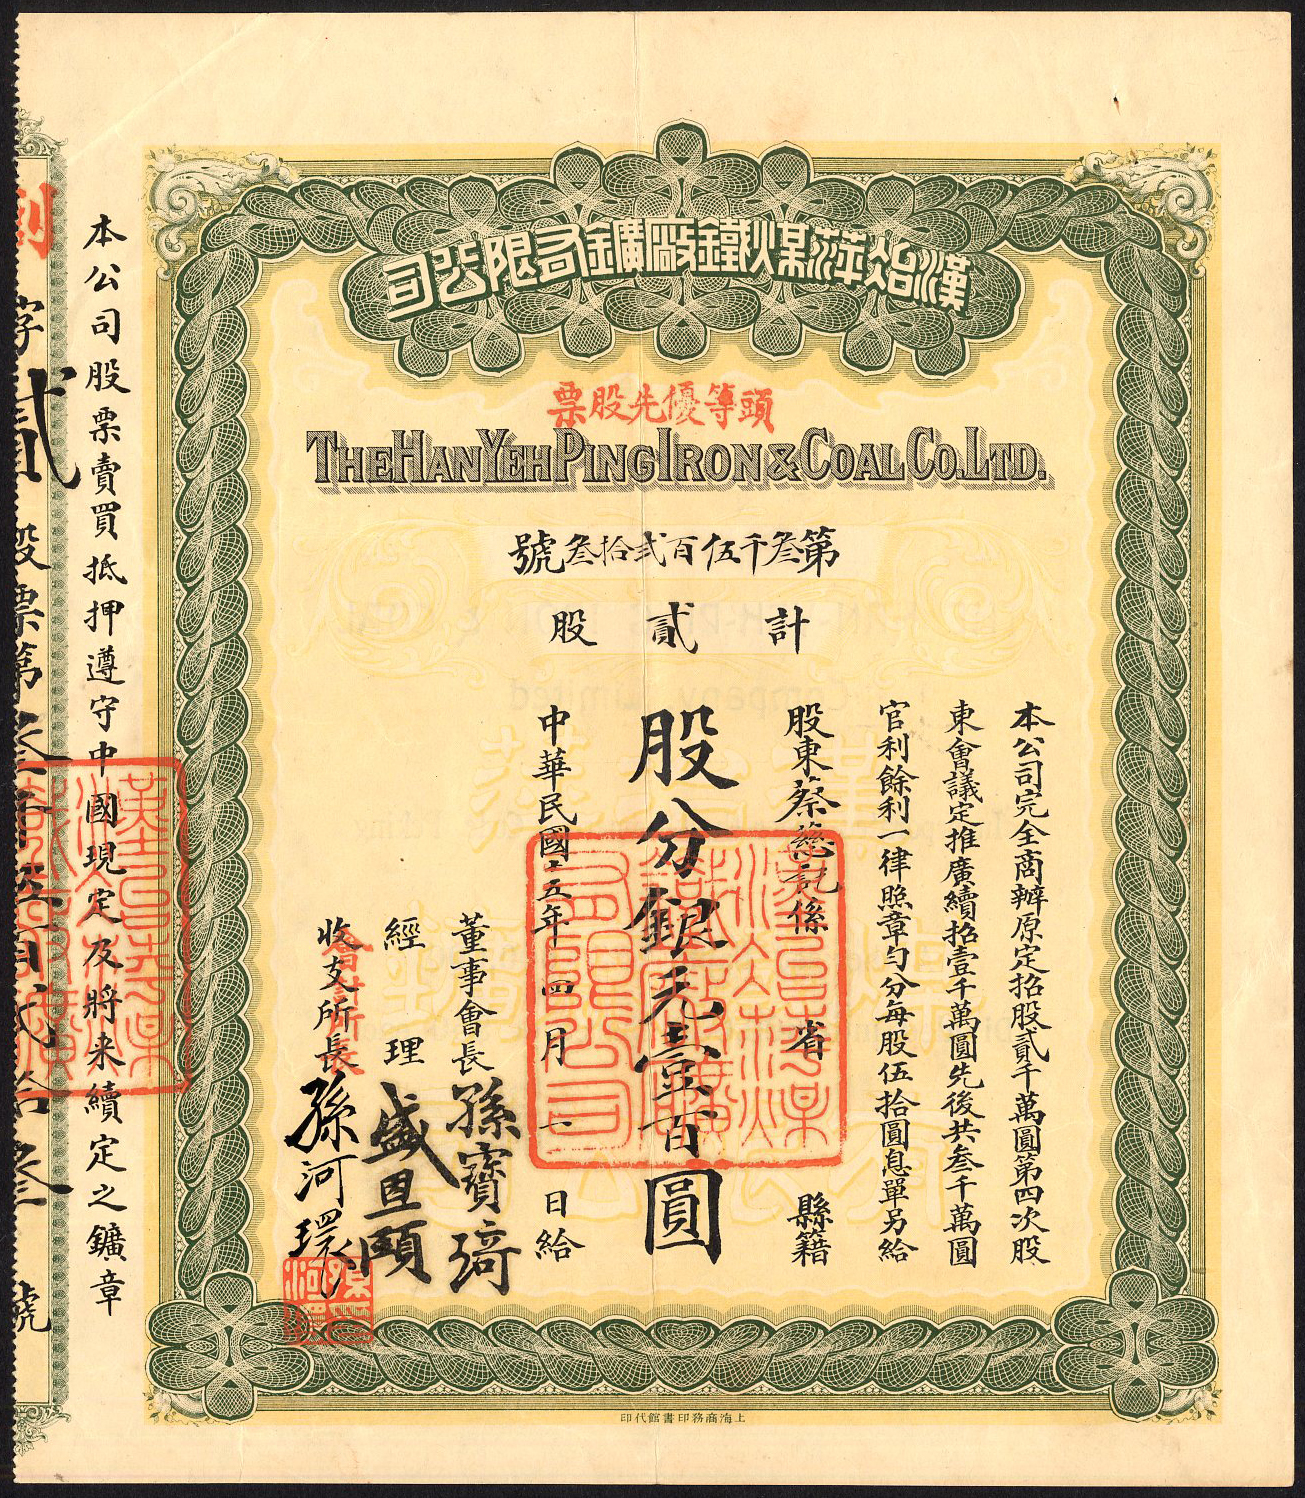 漢冶萍煤鐵廠礦有限公司
頭等優先股票
THE HAN YEH PING IRON & COAL CO. LTD.
第叁千伍百弍拾叁號
計貳股
本公司完全商辦原定招股貳千萬圓第四次股
東會議定推廣續招壹千萬圓先後共叁千萬圓
官利餘利一律照章勻分每股伍拾圓息單另給
股東蔡慈記係 省 縣籍
股分銀元壹百圓
中華民國十五年四月一日給
董事會長 孫寶琦
經理 盛恩頤
會計所長
收支所長 孫河環
本公司股票賣買抵押遵守中國現定及將來續定之鑛章
字貳股票第叁千伍百弍拾叁號
漢冶萍煤鐵廠礦有限公司
上海商務印書館代印